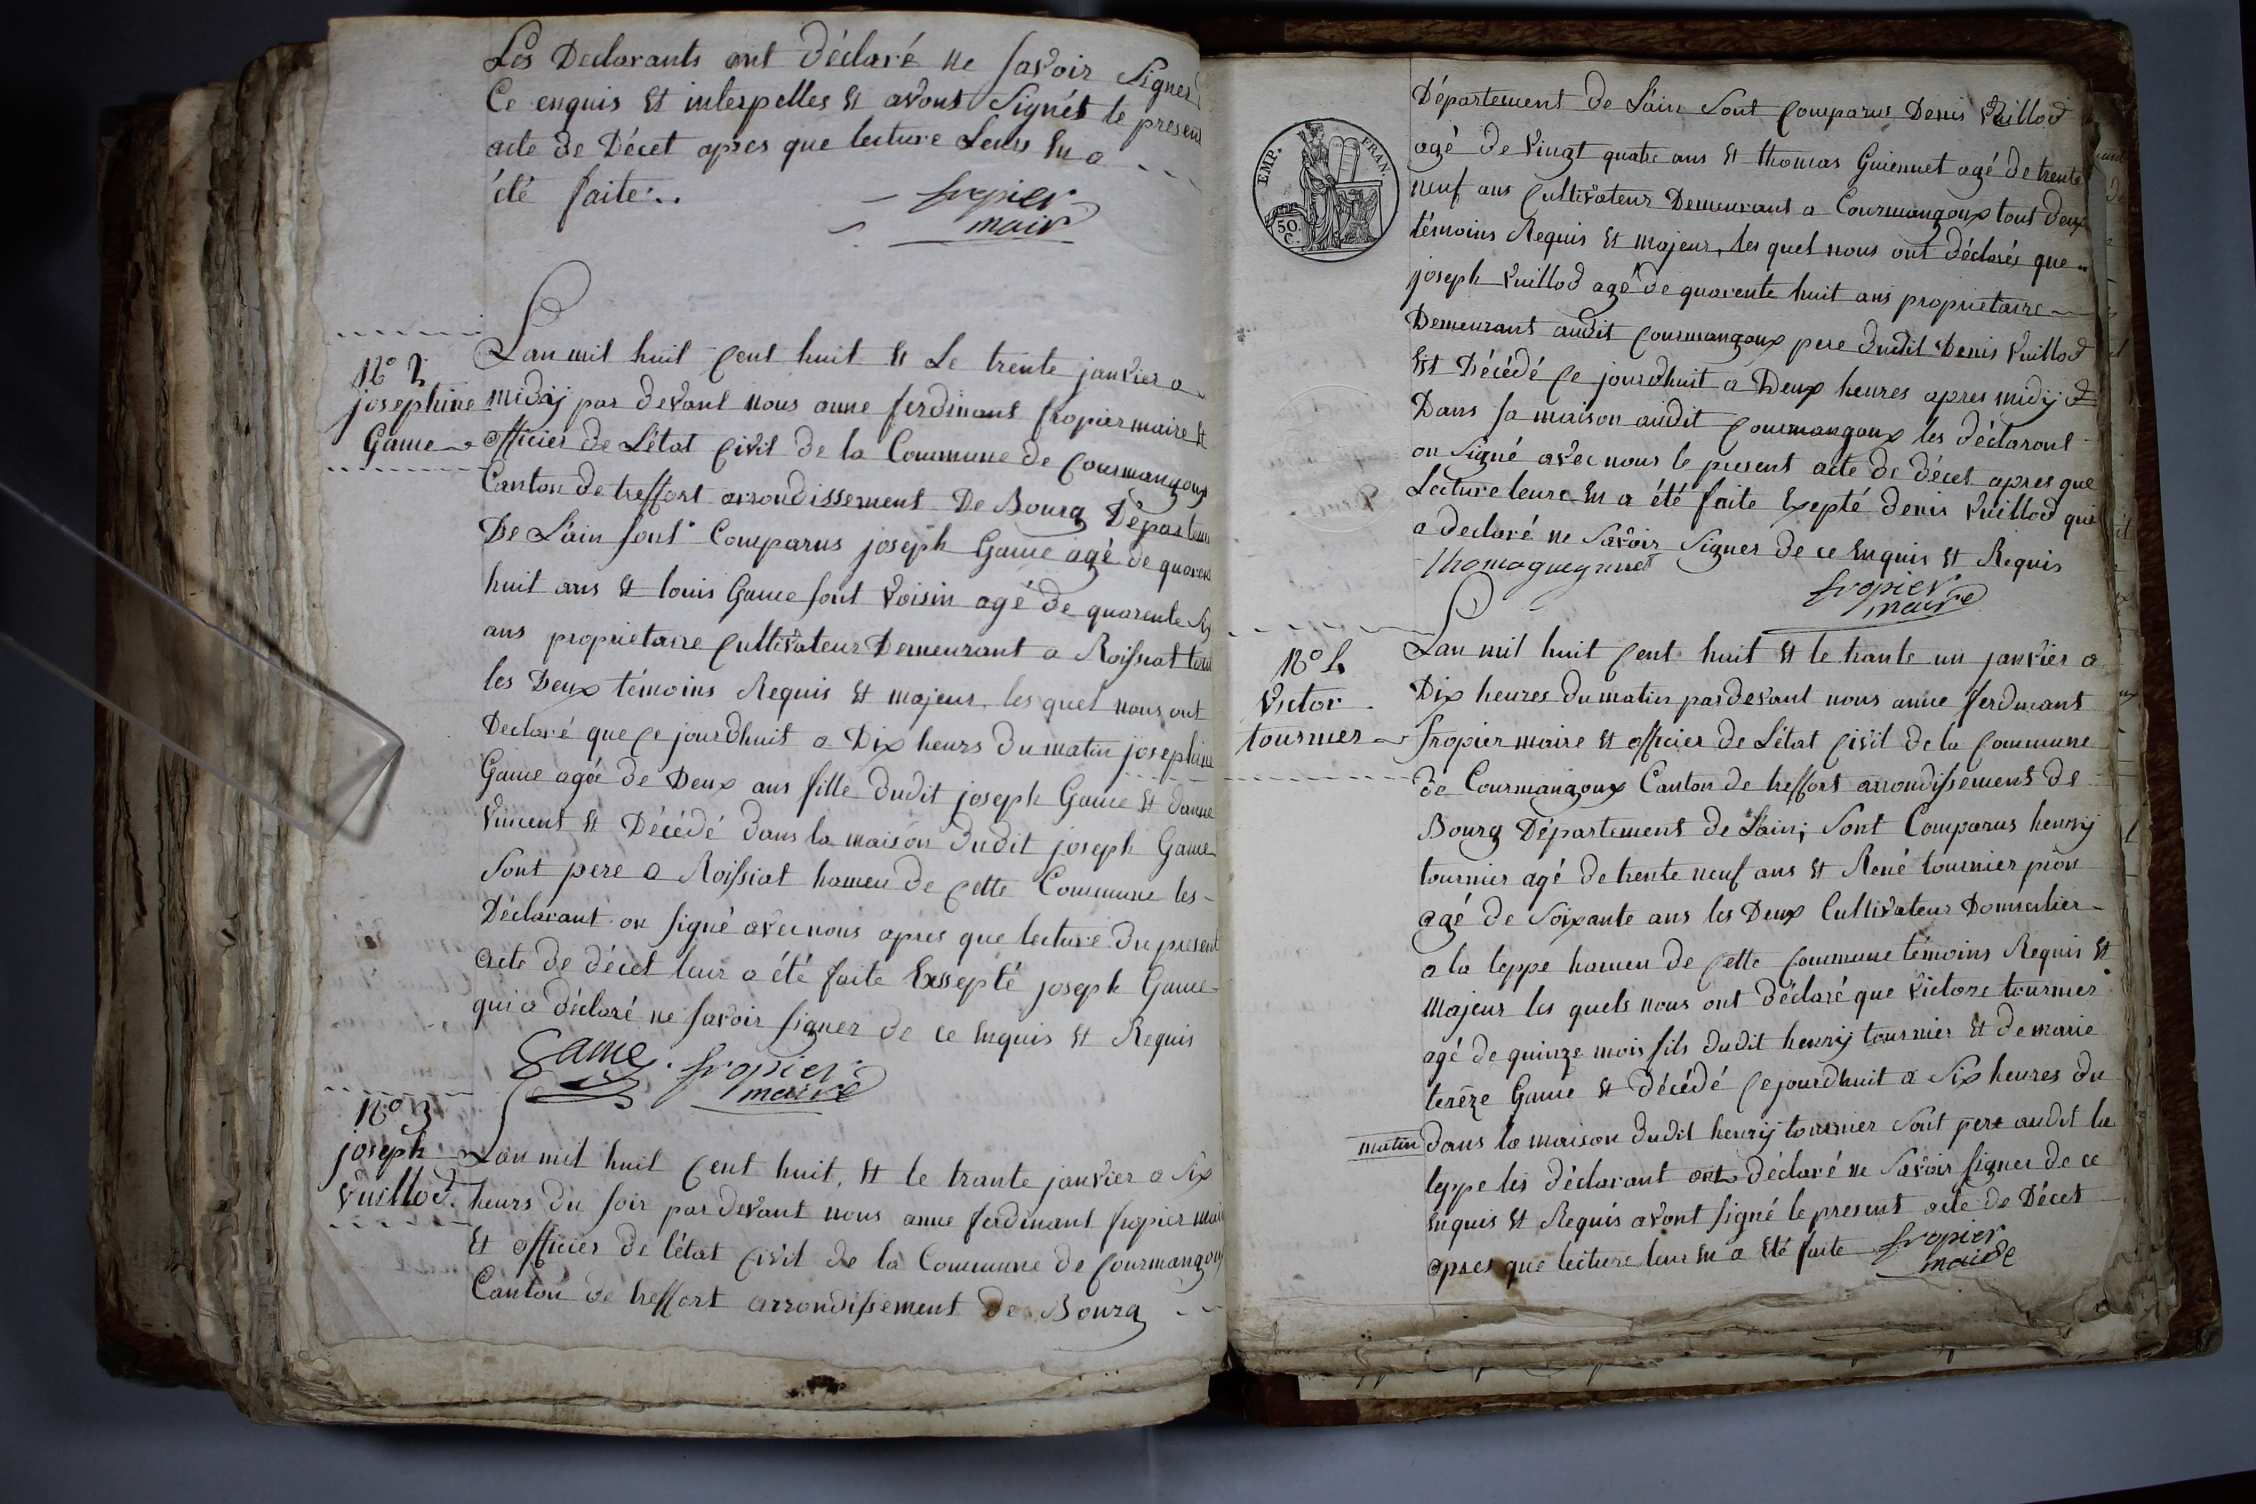 Les Declarants ont déclaré ne savoir signer
Ce enquis et interpelles et avons signés le present
acte de Décet apres que lecture Leurs en a
été faite..
fropier
mair
N° 2
josephine
Game
Lan mil huit cent huit et Le trente janvier a
midij par devant nous anne ferdinant fropier maire et
officier de L'état civil de la Commune de Courmangoux
Canton de treffort arrondissement De Bourg Département
De L'ain sont Comparus joseph Game agé de quarente
huit ans et louis Game sont voisin agé de quarente six
ans proprietaire Cultivateur Demeurant a Roissiat tout
les Deux témoins Requis et majeur, les quel nous ont
Declaré que ce jourdhuit a Dix heurs du matin josephine
Game agée de Deux ans fille dudit joseph Game et danne
Vincent et Décédé dans la maison dudit joseph Game
Sont pere a Roissiat hameu de Cette Commune les
Déclarant on signé avec nous apres que lecture du present
acte de décet leur a été faite Exsepté joseph Game
qui a déclaré ne savoir signer de ce enquis et Requis
Game. fropier
maire
N° 3
joseph
vuillod
Lan mil huit cent huit, et le trante janvier a six
heurs du soir par devant nous anne ferdinant fropier maire
et officier de l'état civil de la Commune de Courmangoux
Canton de treffort arrondissement de Bourg
EMP. FRAN.
50.
C.
Département de L'ain sont comparus Denis Vuillod
agé de vingt quatre ans et thomas Guiennet agé de trente
neuf ans Cultivateur Demeurant a Courmangoux tout deux
témoins Requis et majeur, les quel nous ont déclarés que
joseph vuillod agé de quarente huit ans proprietaire
Demeurant audit Courmangoux pere dudit Denis vuillod
Est Décédé ce jourdhuit a Deux heures apres midij et
Dans sa maison audit Courmangoux les déclarant
on signé avec nous le present acte de décet apres que
Lecture leure en a été faite Exepté denis vuillod qui
a declaré ne savoir signer de ce enquis et Requis
fropier
maire
N° 4
Victor
tournier
Lan mil huit cent huit et le trante un janvier a
Dix heures du matin par devant nous anne ferdinant
fropier maire et officier de L'état civil de la Commune
de Courmangoux Canton de treffort arrondissement de
Bourg Département de L'ain; sont Comparus henrij
tournier agé de trente neuf ans et René tournier pion
agé de Soixante ans les Deux Cultivateur Domicilier
a la teppe hameu de Cette Commune témoins Requis et
majeur les quels nous ont déclaré que victore tournier
agé de quinze mois fils dudit henrij tournier et de marie
terêze Game et décédé ce jourdhuit a Six heures du
matin dans la maison dudit henrij tournier sont pere audit la
teppe les déclarant ont déclaré ne savoir signer de ce
enquis et Requis avont signé le present acte de Décet
apres que lecture leur en a été faite fropier
maire